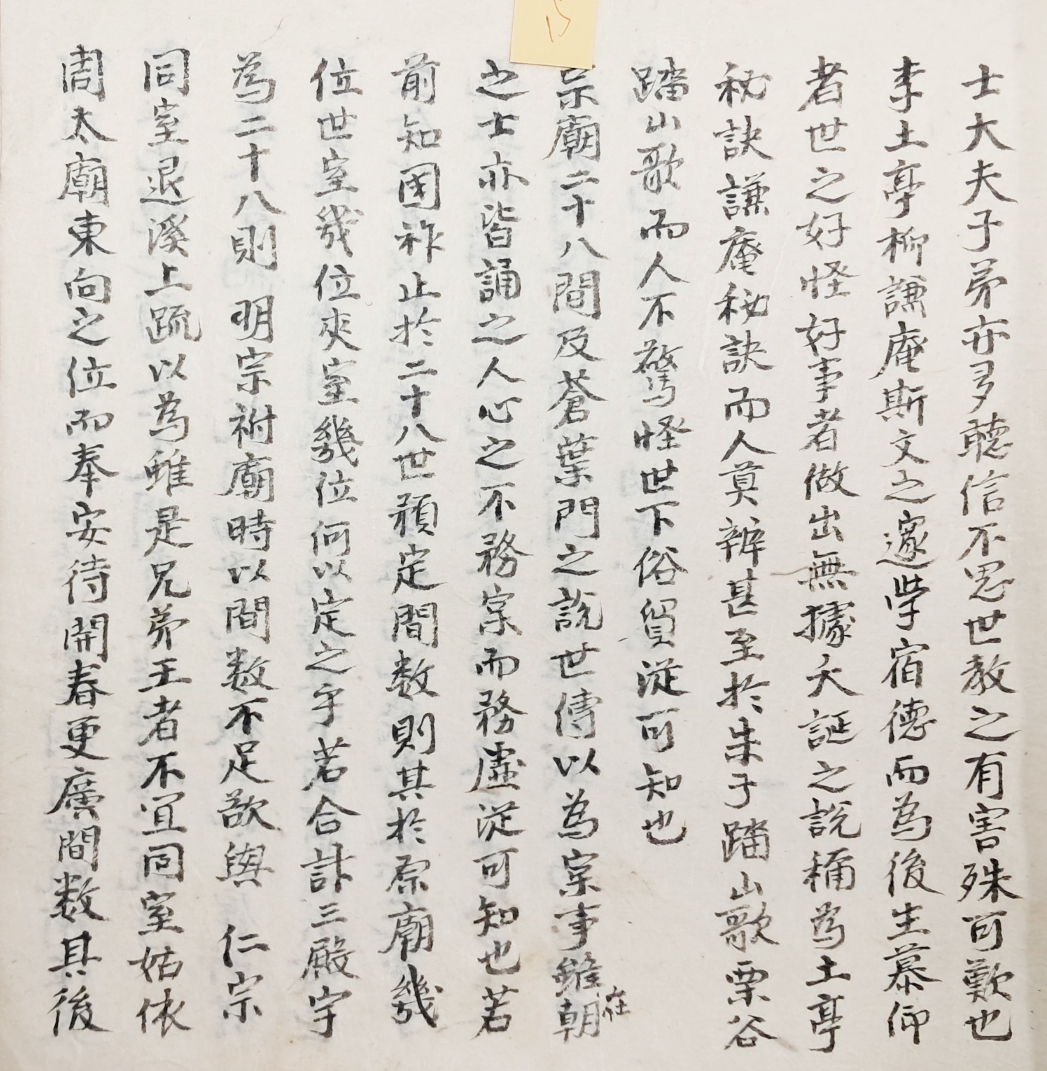 士大夫子弟亦多聽信不思世教之有害殊可歎也
李土亭柳謙庵斯文之邃學宿德而為後生慕仰
者世之好怪好事者做出無據夭誕之說稱為土亭
秘訣謙庵秘訣而人莫辨甚至於朱子踏山歌栗谷
踏山歌而人不驚怪世下俗貿從可知也
宗廟二十八間及蒼葉門之說世傳以為宲事雖在朝
之士亦皆誦之人心之不務宲而務虛從可知也若
前知國祚止於二十八世預定間数則其於原廟幾
位世室幾位夾室幾位何以定之乎若合計三殿宇
為二十八則 明宗祔廟時以間数不足欲與 仁宗
同室退溪上疏以為雖是兄弟王者不宜同室姑依
周太廟東向之位而奉安待開春更廣間数其後